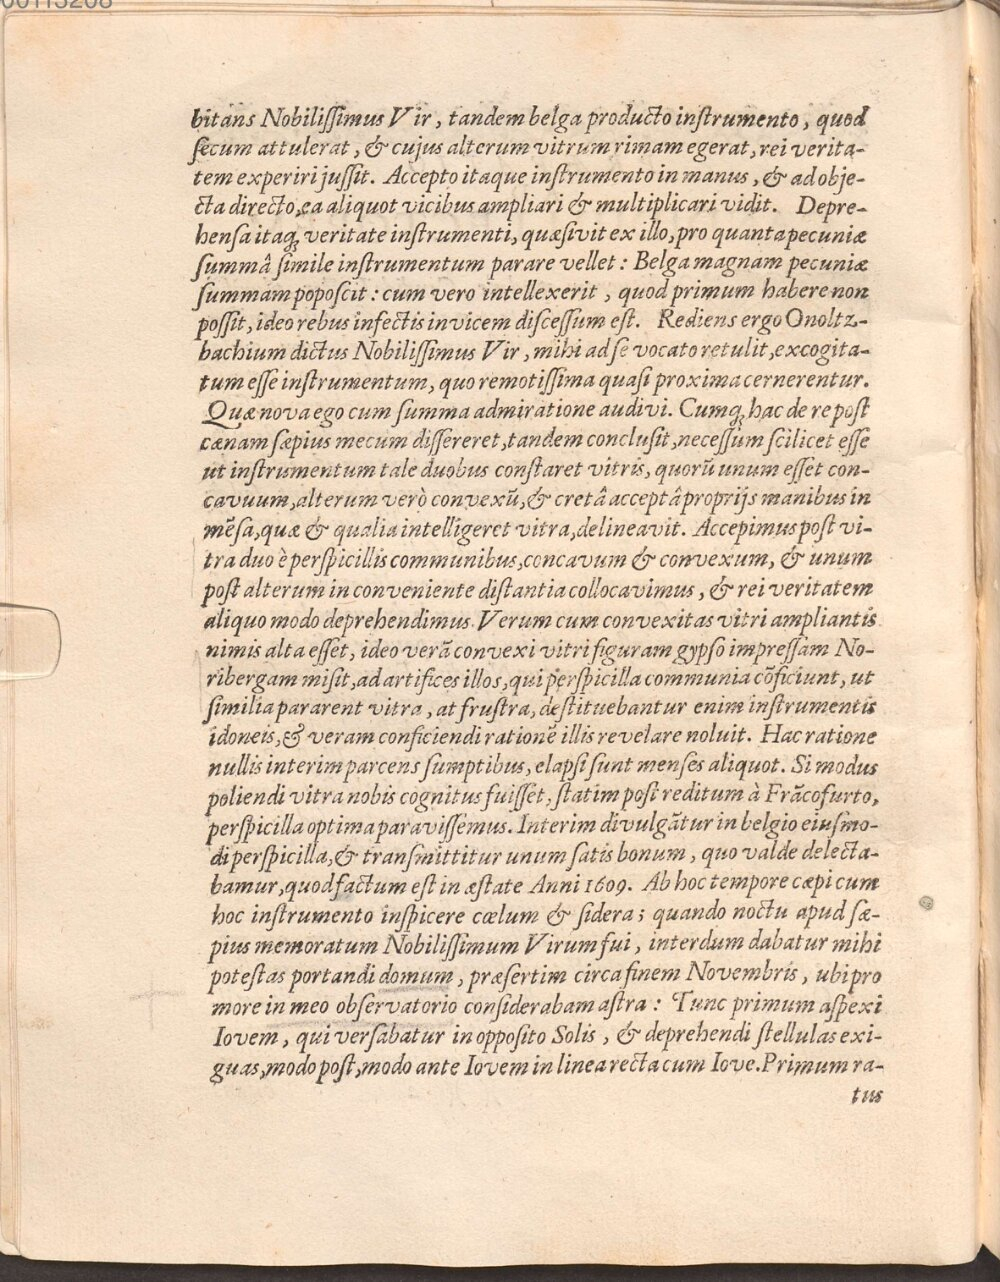 bitans Nobiliſſimus Vir, tandem belga producto inſtrumento, quod
ſecum attulerat, & cujus alterum vitrum rimam egerat, rei verita-
tem experiri juſſit. Accepto itaque inſtrumento in manus, & ad obje-
cta directo, ea aliquot vicibus ampliari & multiplicari vidit. Depre-
henſa itaq; veritate inſtrumenti, quæsivit ex illo, pro quanta pecuniæ
ſummâ ſimile inſtrumentum parare vellet: Belga magnam pecuniæ
ſummam popoſcit: cum vero intellexerit, quod primum habere non
poſſit, ideo rebus infectis invicem diſceſſum eſt. Rediens ergo Onoltz-
bachium dictus Nobiliſſimus Vir, mihi ad ſe vocato retulit, excogita-
tum eſſe inſtrumentum, quo remotiſſima quaſi proxima cernerentur.
Quæ nova ego cum ſumma admiratione audivi. Cumq; hac de re poſt
cænam ſæpius mecum diſſereret, tandem concluſit, neceſſum ſcilicet eſſe
ut inſtrumentum tale duobus conſtaret vitris, quorū unum eſſet con-
cavuum, alterum verò convexū, & cretâ acceptâ proprijs manibus in
mēſa, quæ & qualia intelligeret vitra, delineavit. Accepimus poſt vi-
tra duo è perſpicillis communibus, concavum & convexum, & unum
poſt alterum in conveniente diſtantia collocavimus, & rei veritatem
aliquo modo deprehendimus. Verum cum convexitas vitri ampliantis
nimis alta eſſet, ideo verā convexi vitri figuram gypſo impreſſam No-
ribergam miſit, ad artifices illos, qui perſpicilla communia cōficiunt, ut
ſimilia pararent vitra, at fruſtra, deſtituebantur enim inſtrumentis
idoneis, & veram conficiendi rationē illis revelare noluit. Hac ratione
nullis interim parcens ſumptibus, elapſi ſunt menſes aliquot. Si modus
poliendi vitra nobis cognitus fuiſſet, ſtatim poſt reditum à Frācofurto,
perſpicilla optima paraviſſemus. Interim divulgātur in belgio eiuſmo-
di perſpicilla, & tranſmittitur unum ſatis bonum, quo valde delecta-
bamur, quod factum eſt in æſtate Anni 1609. Ab hoc tempore cæpi cum
hoc inſtrumento inſpicere cœlum & ſidera; quando noctu apud ſæ-
pius memoratum Nobiliſſimum Virum fui, interdum dabatur mihi
poteſtas portandi domum, præſertim circa finem Novembris, ubi pro
more in meo obſervatorio conſiderabam aſtra: Tunc primum aſpexi
Iovem, qui verſabatur in oppoſito Solis, & deprehendi ſtellulas exi-
guas, modo poſt, modo ante Iovem in linea recta cum Iove. Primum ra-
tus